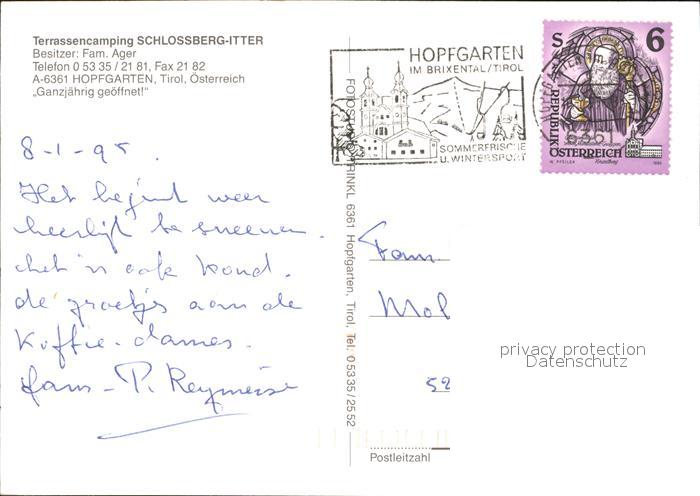 Terrassencamping SCHLOSSBERG-ITTER
Besitzer: Fam. Ager
Telefon 0 53 35 / 21 81, Fax 21 82
A-6361 HOPFGARTEN, Tirol, Österreich
„Ganzjährig geöffnet!"
8-1-95.
Het begint weer
heerlijk te sneeuwen.
het is ook koud.
de groetjes aan de
Koffie-dames.
fam- P. Reymerse
HOPFGARTEN
IM BRIXENTAL/TIROL
SOMMERFRISCHE
U. WINTERSPORT
S 6
REPUBLIK
ÖSTERREICH
6361 Hopfgarten, Tirol, Tel. 0 53 35 / 25 52
Fam
Mol
52
privacy protection
Datenschutz
Postleitzahl